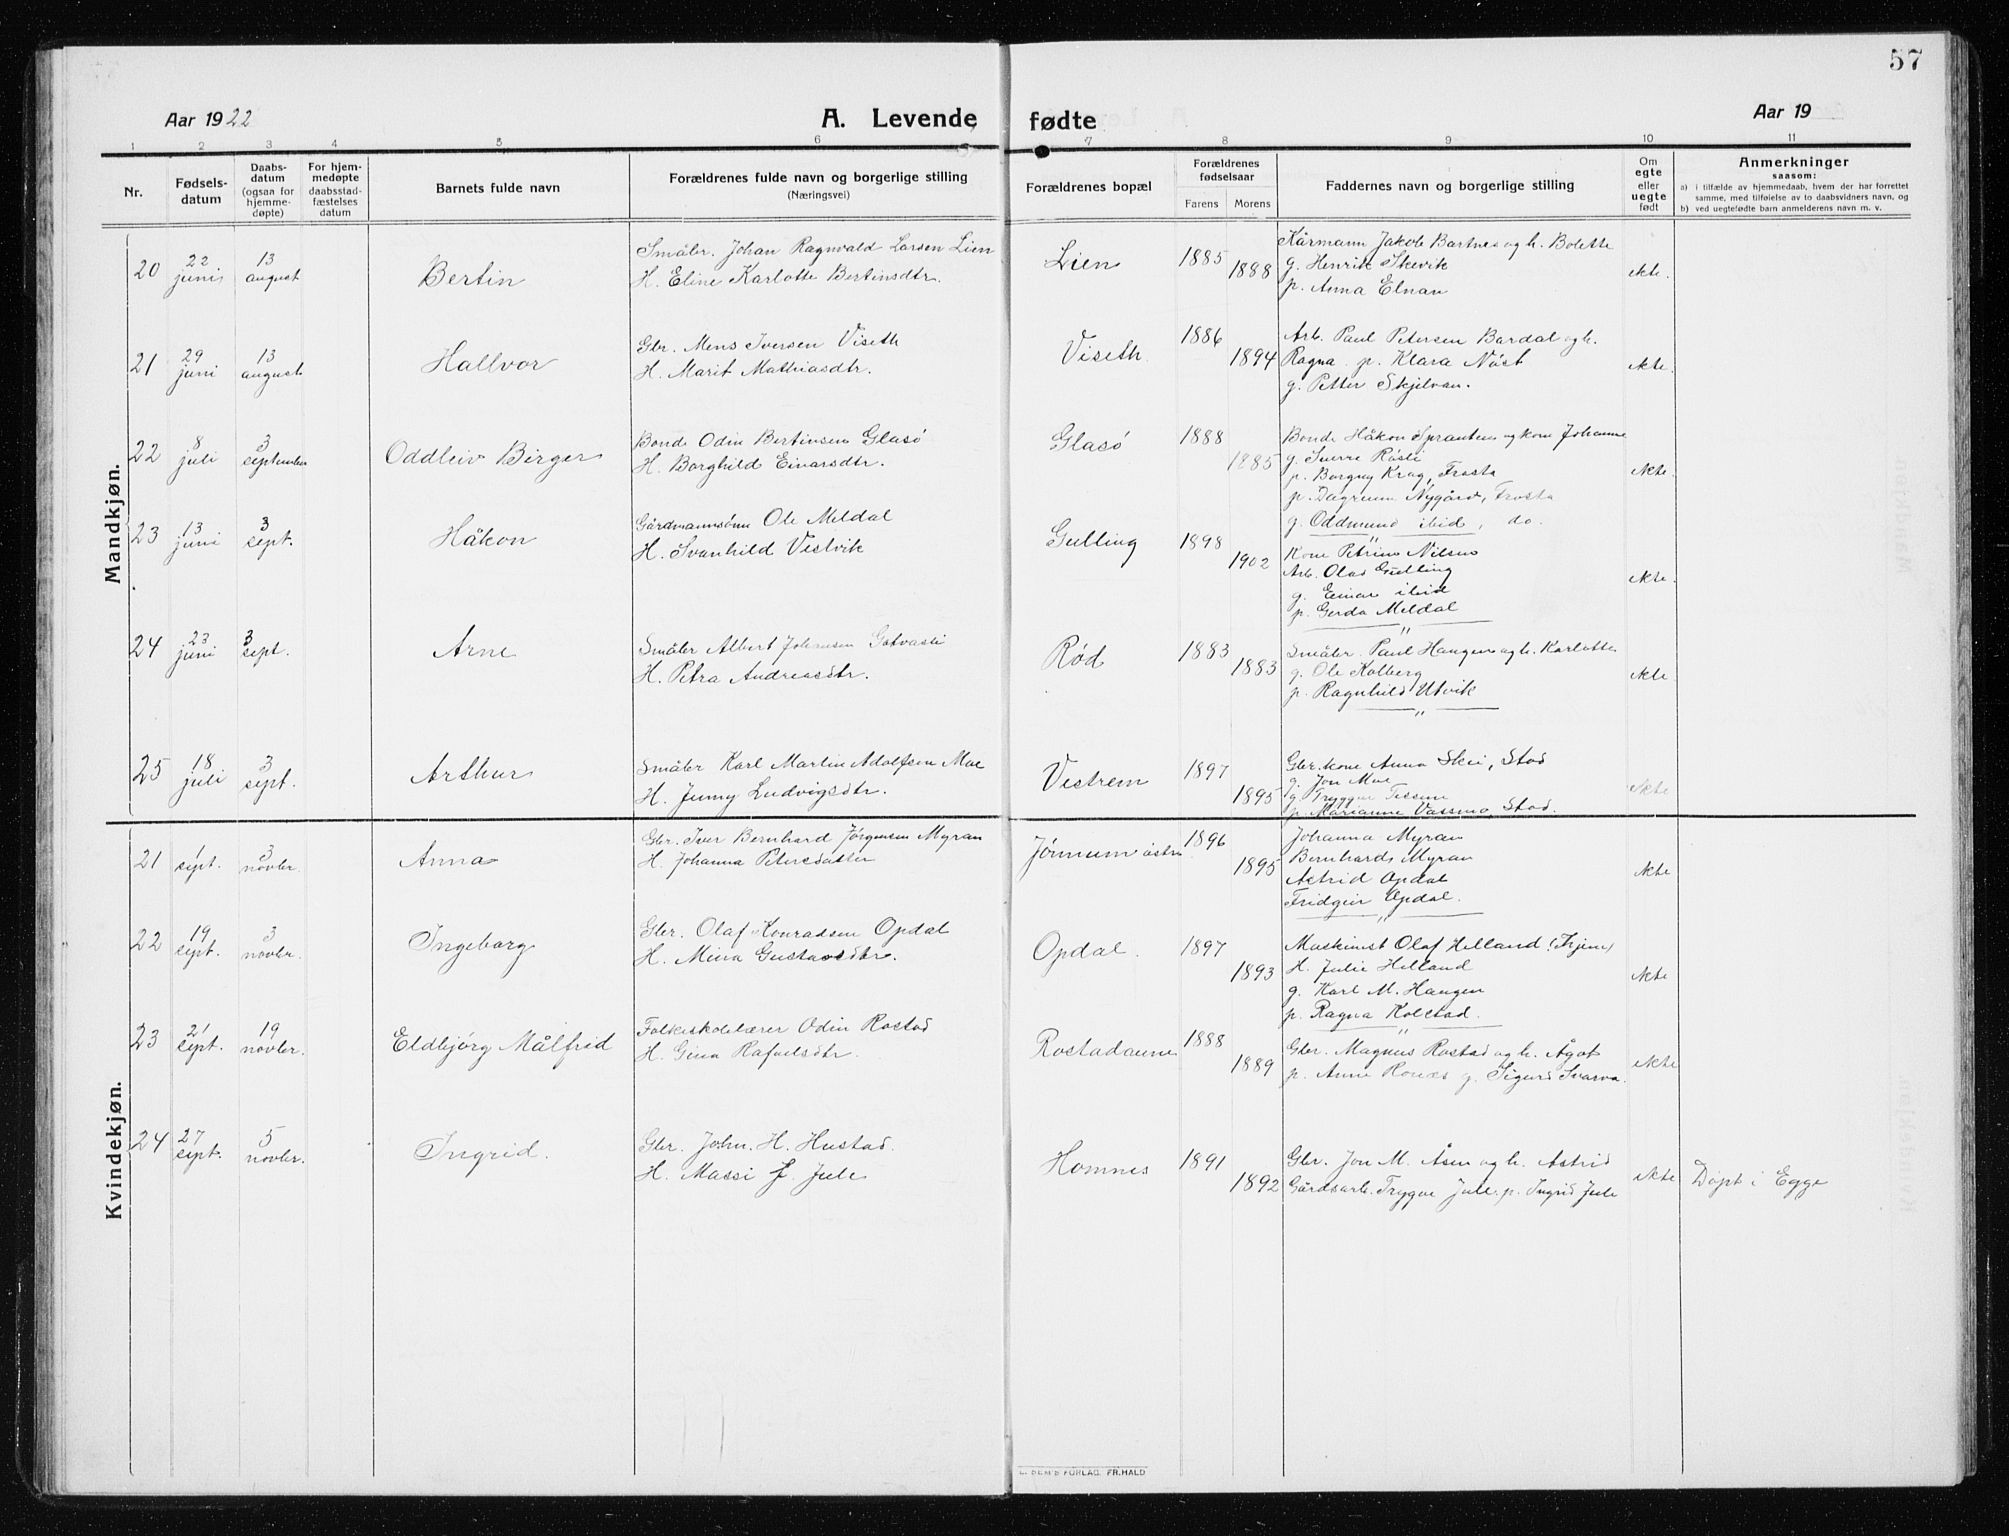 57
Aar 1922
A. Levende fødte
Aar 19
1 2 3 4 5 6 7 8 9 10 11
Nr.
Fødsels-
datum
Daabs-
datum
(ogsaa for
hjemme-
døpte)
For hjem-
medøpte
daabsstad-
fæstelses
datum
Barnets fulde navn
Forældrenes fulde navn og borgerlige stilling
(Næringsvei)
Forældrenes bopæl
Forældrenes
fødselsaar
Farens Morens
Faddernes navn og borgerlige stilling
Om
egte
eller
uegte
født
Anmerkninger
saasom:
a) i tilfælde av hjemmedaab, hvem der har forrettet
samme, med tilføielse av to daabsvidners navn, og
b) ved uegtefødte barn anmelderens navn m. v.
Mandkjøn.
20
22 juni
13 august
Bertin
Småbr. Johan Ragnvald Larsen Lien
H. Eline Karlotte Bertinsdtr.
Lien
1885
1888
Kårmann Jakob Bartnes og h. Bolette
g. Henrik Skevik
p. Anna Elnan
ekte.
21
29 juni
13 august
Hallvor
Gbr. Mens Iversen Viseth
H. Marit Mathiasdtr.
Viseth
1886
1894
Arb. Paul Petersen Bardal og h.
Ragna. p. Klara Nöst
g. Petter Skjelvan.
ekte.
22
8 juli
3 september
Oddleiv Birger
Bonde Odin Bertinsen Glasö
H. Borghild Einarsdtr.
Glasö
1888
1885
Bonde Håkon Sprauten og kone Johanne
g. Sverre Rösti
p. Borgny Krog, Frosta
p. Dagrunn Nygård, Frosta
g. Oddmund ibid, do.
ekte.
23
13 juni
3 sept.
Håkon
Gårdmannsönn Ole Meldal
H. Svanhild Vestvik
Gulling
1898
1902
Kone Petrine Nilsen
Arb. Olav Gulling
g. Einar ibid
p. Gerda Meldal
ekte.
24
23 juni
3 sept.
Arne
Småbr Albert Johansen Gotvasli
H. Petra Andreasdtr.
Rød
1883
1883
Småbr. Paul Haugen og h. Karlotte
g. Ole Kolberg
p. Ragnhild Utvik
ekte.
25
18 juli
3 sept.
Arthur
Småbr Karl Martin Adolfsen Moe
H. Jenny Ludvigsdtr.
Vestrem
1897
1895
Gbr. kone Anna Skei, Stod
g. Jon Moe
g. Tryggve Tessem
p. Marianne Vassmo, Stod.
ekte
Kvindekjøn.
21
1 sept.
3 novbr.
Anna
Gbr. Iver Bernhard Jørgensen Myran
H. Johanna Petersdatter
Jönnum östre
1896
1895
Johanna Myran
Bernhard Myran
Astrid Opdal
Fridgeir Opdal.
ekte
22
19 sept.
3 novbr.
Ingeborg
Gbr. Olaf Konradsen Opdal
H. Mina Gustavsdtr.
Opdal.
1897
1893
Maskinist Olaf Helland
H. Julie Helland
g. Karl M. Haugen
p. Ragna Kolstad.
ekte
23
21 sept.
19 novbr.
Eldbjörg Målfrid
Folkeskolelærer Odin Rostad
H. Gina Rafaelsdtr.
Rostadaune
1888
1889
Gbr. Magnus Rostad og h. Ågot
p. Anne Ronæs g. Sigurd Svarva.
ekte
24
27 sept.
5 novbr.
Ingrid.
Gbr. John. H. Hustad.
H. Massi J. Jule
Homnes
1891
1892
Gbr. Jon M. Åsen og h. Astrid
Gårdsarb. Trygve Jule. p. Ingrid Jule
ekte
Döpt i Egge
FORLAG. FR. HALD